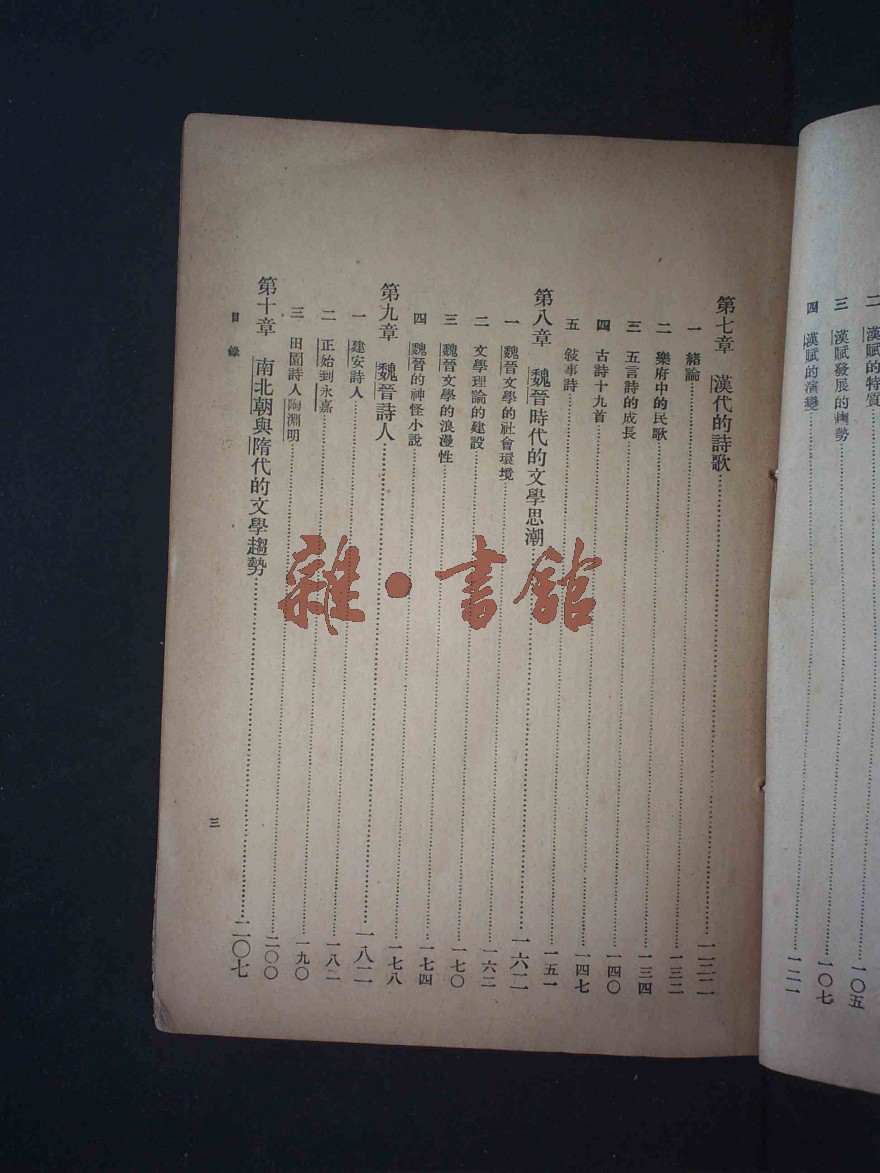 二 漢賦的特質……一〇五
三 漢賦發展的趨勢……一〇七
四 漢賦的演變……一二一
第七章 漢代的詩歌……一三二
一 緒論……一三二
二 樂府中的民歌……一三四
三 五言詩的成長……一四〇
四 古詩十九首……一四七
五 敍事詩……一五一
第八章 魏晉時代的文學思潮……一六二
一 魏晉文學的社會環境……一六二
二 文學理論的建設……一七〇
三 魏晉文學的浪漫性……一七四
四 魏晉的神怪小說……一七八
第九章 魏晉詩人……一八二
一 建安詩人……一八二
二 正始到永嘉……一九〇
三 田園詩人陶淵明……二〇〇
第十章 南北朝與隋代的文學趨勢……二〇七
目錄
三
雜·書館